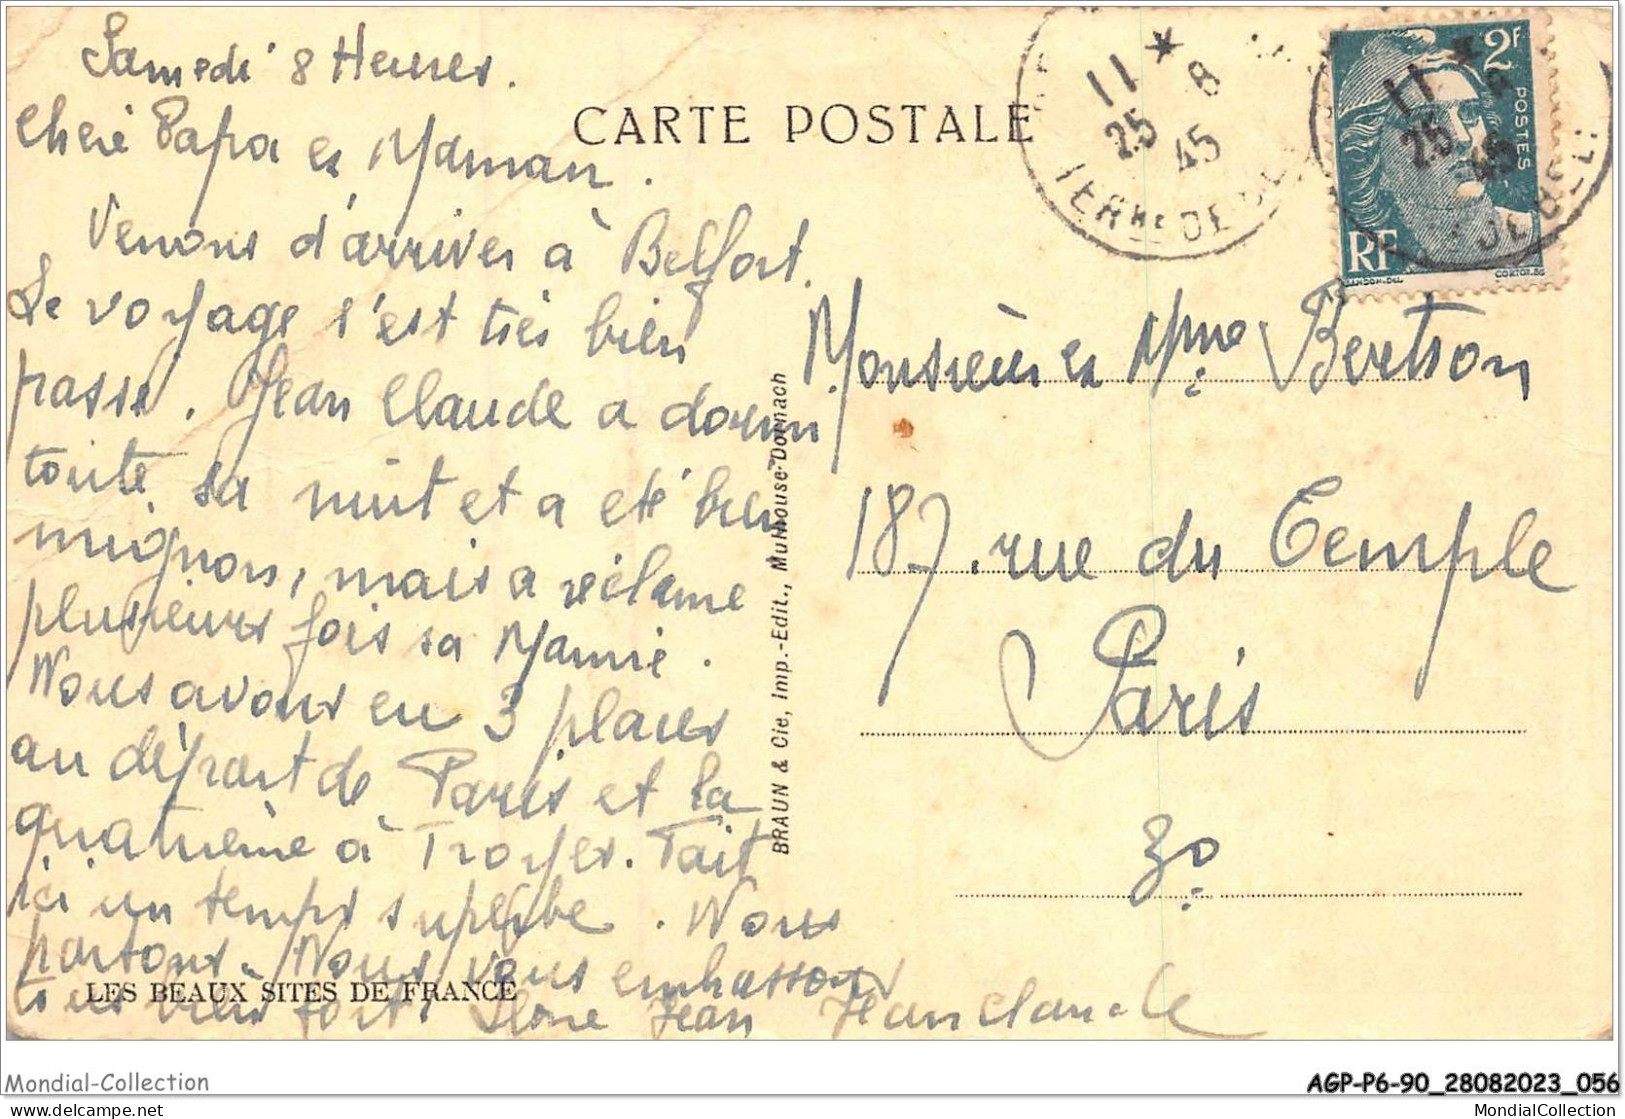 Samedi 8 Heures.
CARTE POSTALE
Cheri Papa et Maman.
Venons d'arriver à Belfort.
Le voyage s'est très bien
passé. Jean Claude a dormi
toute sa nuit et a été bien
mignon, mais a réclamé
plusieurs fois sa Mamie.
Nous avons eu 3 places
au départ de Paris et la
quatrième à Troyes. Fait
ici un temps superbe. Nous
partons. Nous vous embrassons
tous bien fort. Jean Jean Claude
LES BEAUX SITES DE FRANCE
BRAUN & Cie, Imp.-Edit., Mulhouse-Dornach
11 * 8
25 45
TERRre DE BE
2F
POSTES
RF
GANDON.DEL
CORTOT.SC
11 * 8
25 45
Monsieur et Mme Bertson
187. rue du Temple
Paris
3o
Mondial-Collection
AGP-P6-90_28082023_056
www.delcampe.net
MondialCollection